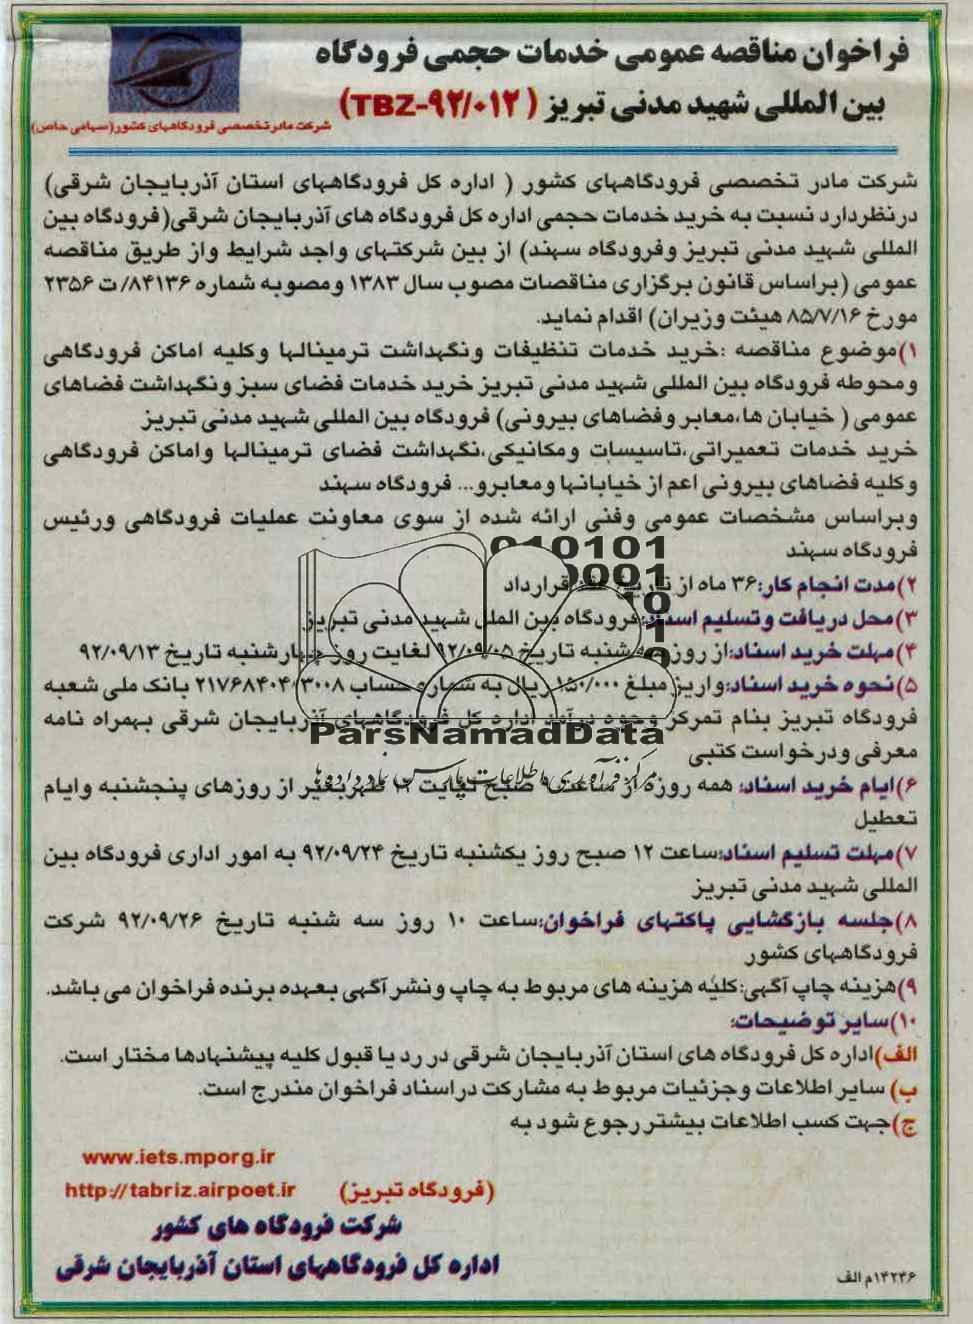 فراخوان مناقصه عمومی خدمات حجمی فرودگاه
بین المللی شهید مدنی تبریز (TBZ-۹۲/۰۱۲)
شرکت مادر تخصصی فرودگاههای کشور(سهامی خاص)
شرکت مادر تخصصی فرودگاههای کشور ( اداره کل فرودگاههای استان آذربایجان شرقی)
درنظردارد نسبت به خرید خدمات حجمی اداره کل فرودگاه های آذربایجان شرقی(فرودگاه بین
المللی شهید مدنی تبریز وفرودگاه سهند) از بین شرکتهای واجد شرایط واز طریق مناقصه
عمومی (براساس قانون برگزاری مناقصات مصوب سال ۱۳۸۳ ومصوبه شماره ۸۴۱۳۶/ ت ۲۳۵۶
مورخ ۸۵/۷/۱۶ هیئت وزیران) اقدام نماید.
۱)موضوع مناقصه :خرید خدمات تنظیفات ونگهداشت ترمینالها وکلیه اماکن فرودگاهی
ومحوطه فرودگاه بین المللی شهید مدنی تبریز خرید خدمات فضای سبز ونگهداشت فضاهای
عمومی ( خیابان ها،معابر وفضاهای بیرونی) فرودگاه بین المللی شهید مدنی تبریز
خرید خدمات تعمیراتی،تاسیسات ومکانیکی،نگهداشت فضای ترمینالها واماکن فرودگاهی
وکلیه فضاهای بیرونی اعم از خیابانها ومعابرو... فرودگاه سهند
وبراساس مشخصات عمومی وفنی ارائه شده از سوی معاونت عملیات فرودگاهی ورئیس
فرودگاه سهند
۲)مدت انجام کار:۳۶ ماه از تاریخ عقد قرارداد
۳)محل دریافت وتسلیم اسناد:فرودگاه بین الملل شهید مدنی تبریز
۴)مهلت خرید اسناد:از روز سه شنبه تاریخ ۹۲/۰۹/۰۵ لغایت روز چهارشنبه تاریخ ۹۲/۰۹/۱۳
۵)نحوه خرید اسناد:واریز مبلغ ۱۵۰/۰۰۰ ریال به شماره حساب ۲۱۷۶۸۴۰۴۰۳۰۰۸ بانک ملی شعبه
فرودگاه تبریز بنام تمرکز وجوه درآمد اداره کل فرودگاههای آذربایجان شرقی بهمراه نامه
معرفی ودرخواست کتبی
۶)ایام خرید اسناد: همه روزه از ساعت ۹ صبح لغایت ظهر بغیر از روزهای پنجشنبه وایام
تعطیل
۷)مهلت تسلیم اسناد:ساعت ۱۲ صبح روز یکشنبه تاریخ ۹۲/۰۹/۲۴ به امور اداری فرودگاه بین
المللی شهید مدنی تبریز
۸)جلسه بازگشایی پاکتهای فراخوان:ساعت ۱۰ روز سه شنبه تاریخ ۹۲/۰۹/۲۶ شرکت
فرودگاههای کشور
۹)هزینه چاپ آگهی:کلیه هزینه های مربوط به چاپ ونشر آگهی بعهده برنده فراخوان می باشد.
۱۰)سایر توضیحات:
الف)اداره کل فرودگاه های استان آذربایجان شرقی در رد یا قبول کلیه پیشنهادها مختار است.
ب) سایر اطلاعات وجزئیات مربوط به مشارکت دراسناد فراخوان مندرج است.
ج)جهت کسب اطلاعات بیشتر رجوع شود به
www.iets.mporg.ir
(فرودگاه تبریز) http://tabriz.airpoet.ir
شرکت فرودگاه های کشور
اداره کل فرودگاههای استان آذربایجان شرقی
۱۴۲۴۶م الف
010101
0001
10
1
ParsNamadData
مرکز فرآوری اطلاعات پارس نماد داده ها